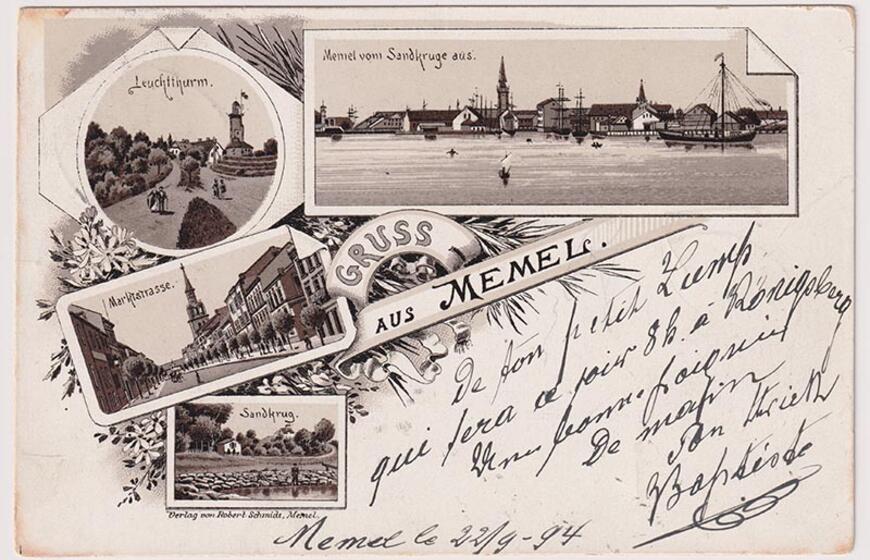 Leuchtthurm.
Memel vom Sandkruge aus.
GRUSS
AUS MEMEL.
Marktstrasse.
Sandkrug.
Verlag von Robert Schmidt, Memel.
De ton petit Lump
qui sera ce soir 8h. à Königsberg
Une bonne poignée
De main
Ton
Baptiste
Memel le 22/9-94